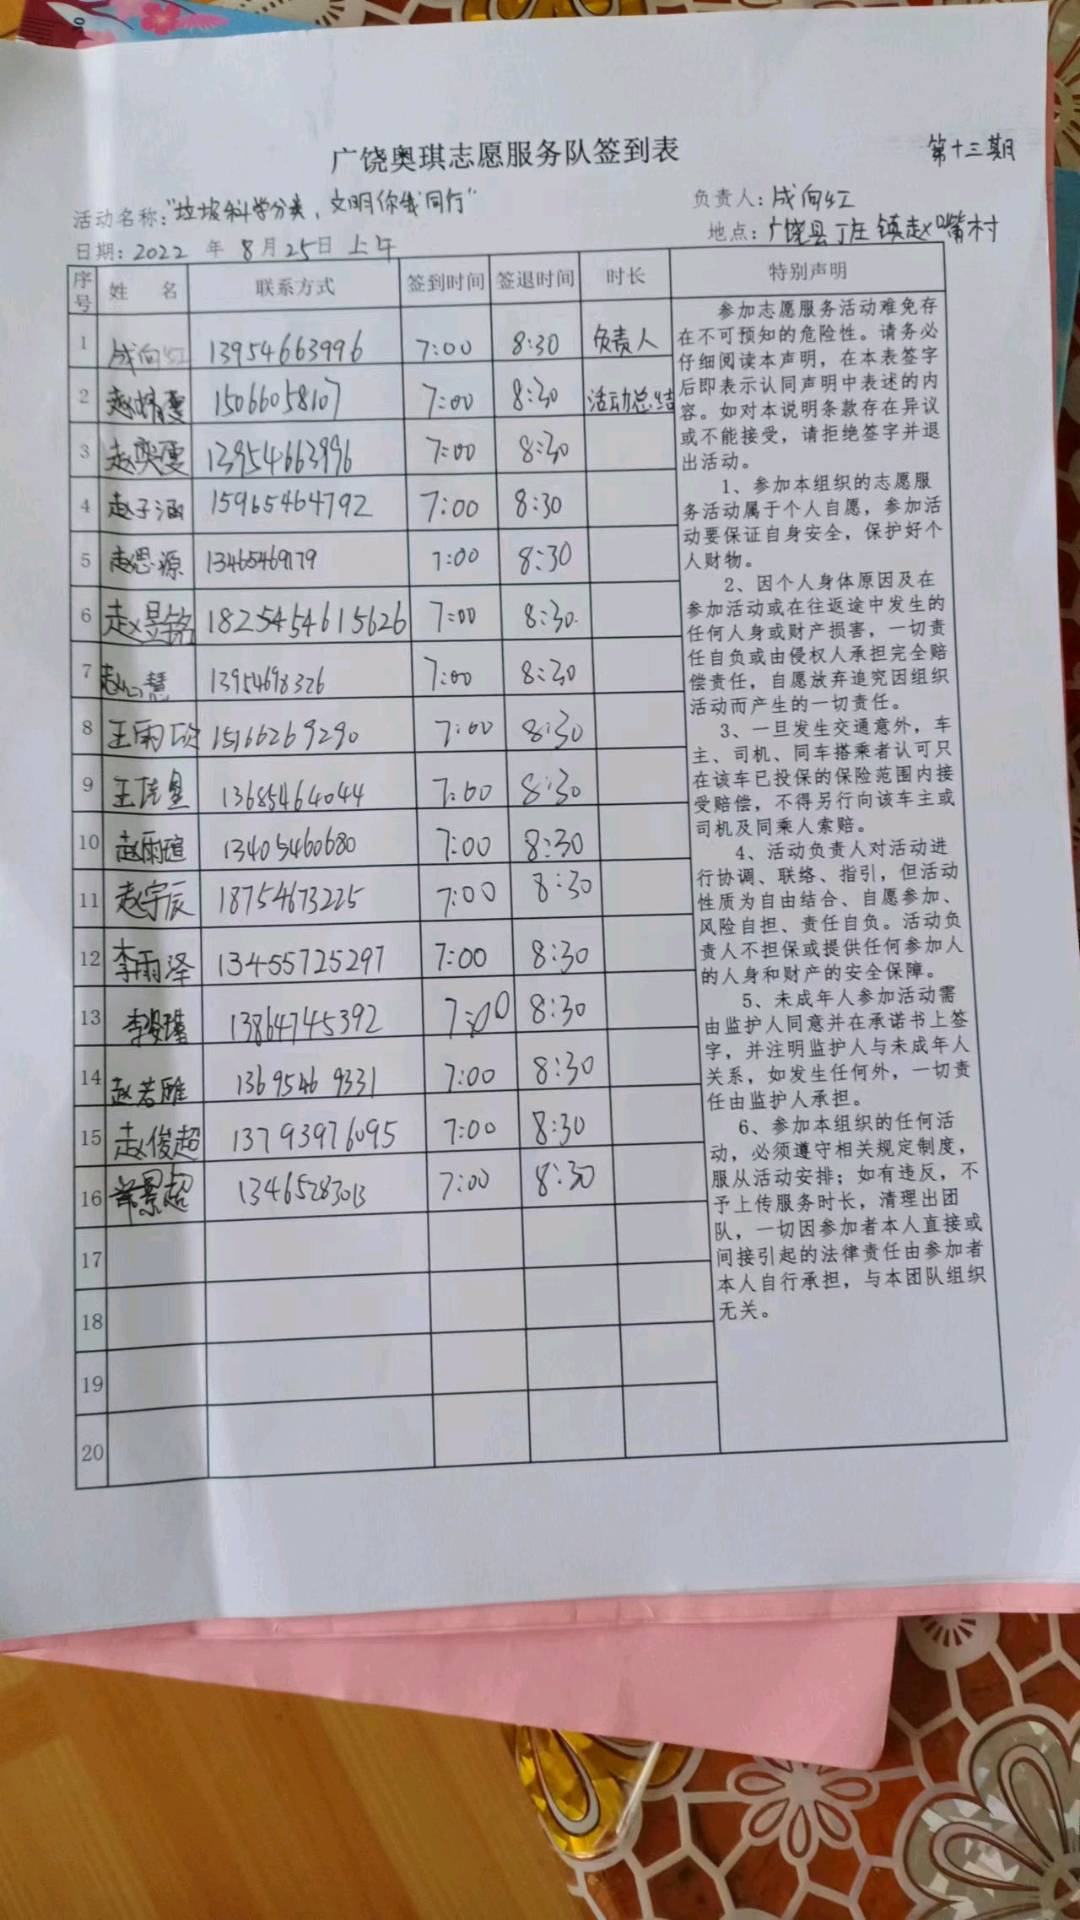 广饶奥琪志愿服务队签到表
第十三期
活动名称："垃圾科学分类，文明你我同行"
负责人：成向红
日期：2022 年 8月25日 上午
地点：广饶县丁庄镇赵嘴村
序号 姓 名 联系方式 签到时间 签退时间 时长 特别声明
1 成向红 13954663996 7:00 8:30 负责人
2 赵婧雯 15066058107 7:00 8:30 活动总结
3 赵奕雯 13954663996 7:00 8:30
4 赵子涵 15965464792 7:00 8:30
5 赵思源 13465469179 7:00 8:30
6 赵昱铭 1825454615626 7:00 8:30
7 赵心慧 13954698326 7:00 8:30
8 王雨欣 15166269290 7:00 8:30
9 王 13685464044 7:00 8:30
10 赵雨瑄 13405460680 7:00 8:30
11 赵宇辰 18754673225 7:00 8:30
12 李雨泽 13455725297 7:00 8:30
13 李 13864745392 7:00 8:30
14 赵若雅 13695469331 7:00 8:30
15 赵俊超 13793976095 7:00 8:30
16 景超 13465283013 7:00 8:30
17
18
19
20
参加志愿服务活动难免存
在不可预知的危险性。请务必
仔细阅读本声明，在本表签字
后即表示认同声明中表述的内
容。如对本说明条款存在异议
或不能接受，请拒绝签字并退
出活动。
1、参加本组织的志愿服
务活动属于个人自愿，参加活
动要保证自身安全，保护好个
人财物。
2、因个人身体原因及在
参加活动或在往返途中发生的
任何人身或财产损害，一切责
任自负或由侵权人承担完全赔
偿责任，自愿放弃追究因组织
活动而产生的一切责任。
3、一旦发生交通意外，车
主、司机、同车搭乘者认可只
在该车已投保的保险范围内接
受赔偿，不得另行向该车主或
司机及同乘人索赔。
4、活动负责人对活动进
行协调、联络、指引，但活动
性质为自由结合、自愿参加、
风险自担、责任自负。活动负
责人不担保或提供任何参加人
的人身和财产的安全保障。
5、未成年人参加活动需
由监护人同意并在承诺书上签
字，并注明监护人与未成年人
关系，如发生任何外，一切责
任由监护人承担。
6、参加本组织的任何活
动，必须遵守相关规定制度，
服从活动安排；如有违反，不
予上传服务时长，清理出团
队，一切因参加者本人直接或
间接引起的法律责任由参加者
本人自行承担，与本团队组织
无关。